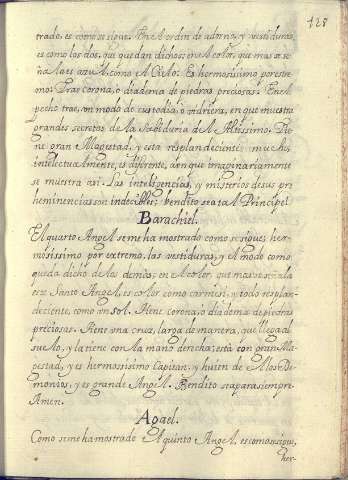 128
trado, es como se sigue. En el orden de adorno, y vestiduras
es como los dos, que quedan dichos; en el color, que mas se se
ñala es azul, como el Cielo. Es hermosissimo por estre
mo: Trae corona, o diadema de piedras preciosas: En el
pecho trae, on modo de custodia, o vidriera, en que muestra
grandes secretos de la Sabiduria del Altissimo. Tie
ne gran Magestad, y esta resplandeciente mucho,
intelectualmente, es diferente, aunque imaginariamente
se muestra assi. Las inteligencias, y misterios de sus pre
heminencias son indecibles; bendito sea tal Principe!
Barachiel.
El quarto Angel se me ha mostrado como se sigue; her
mosissimo por extremo, las vestiduras, y el modo como
queda dicho de los demas; en el color, que mas señala
este Santo Angel, es color como carmesi, y todo resplan
deciente, como un sol. Tiene corona, o diadema de piedras
preciosas. Tiene una cruz, larga de manera, que llega al
suelo, y la tiene con la mano derecha; está con gran Ma
gestad, y es hermosissimo Capitan; y huien de el los De
monios, y es grande Angel. Bendito sea para siempre
Amen.
Agael.
Como se me ha mostrado el quinto Angel, es como sigue,
her-